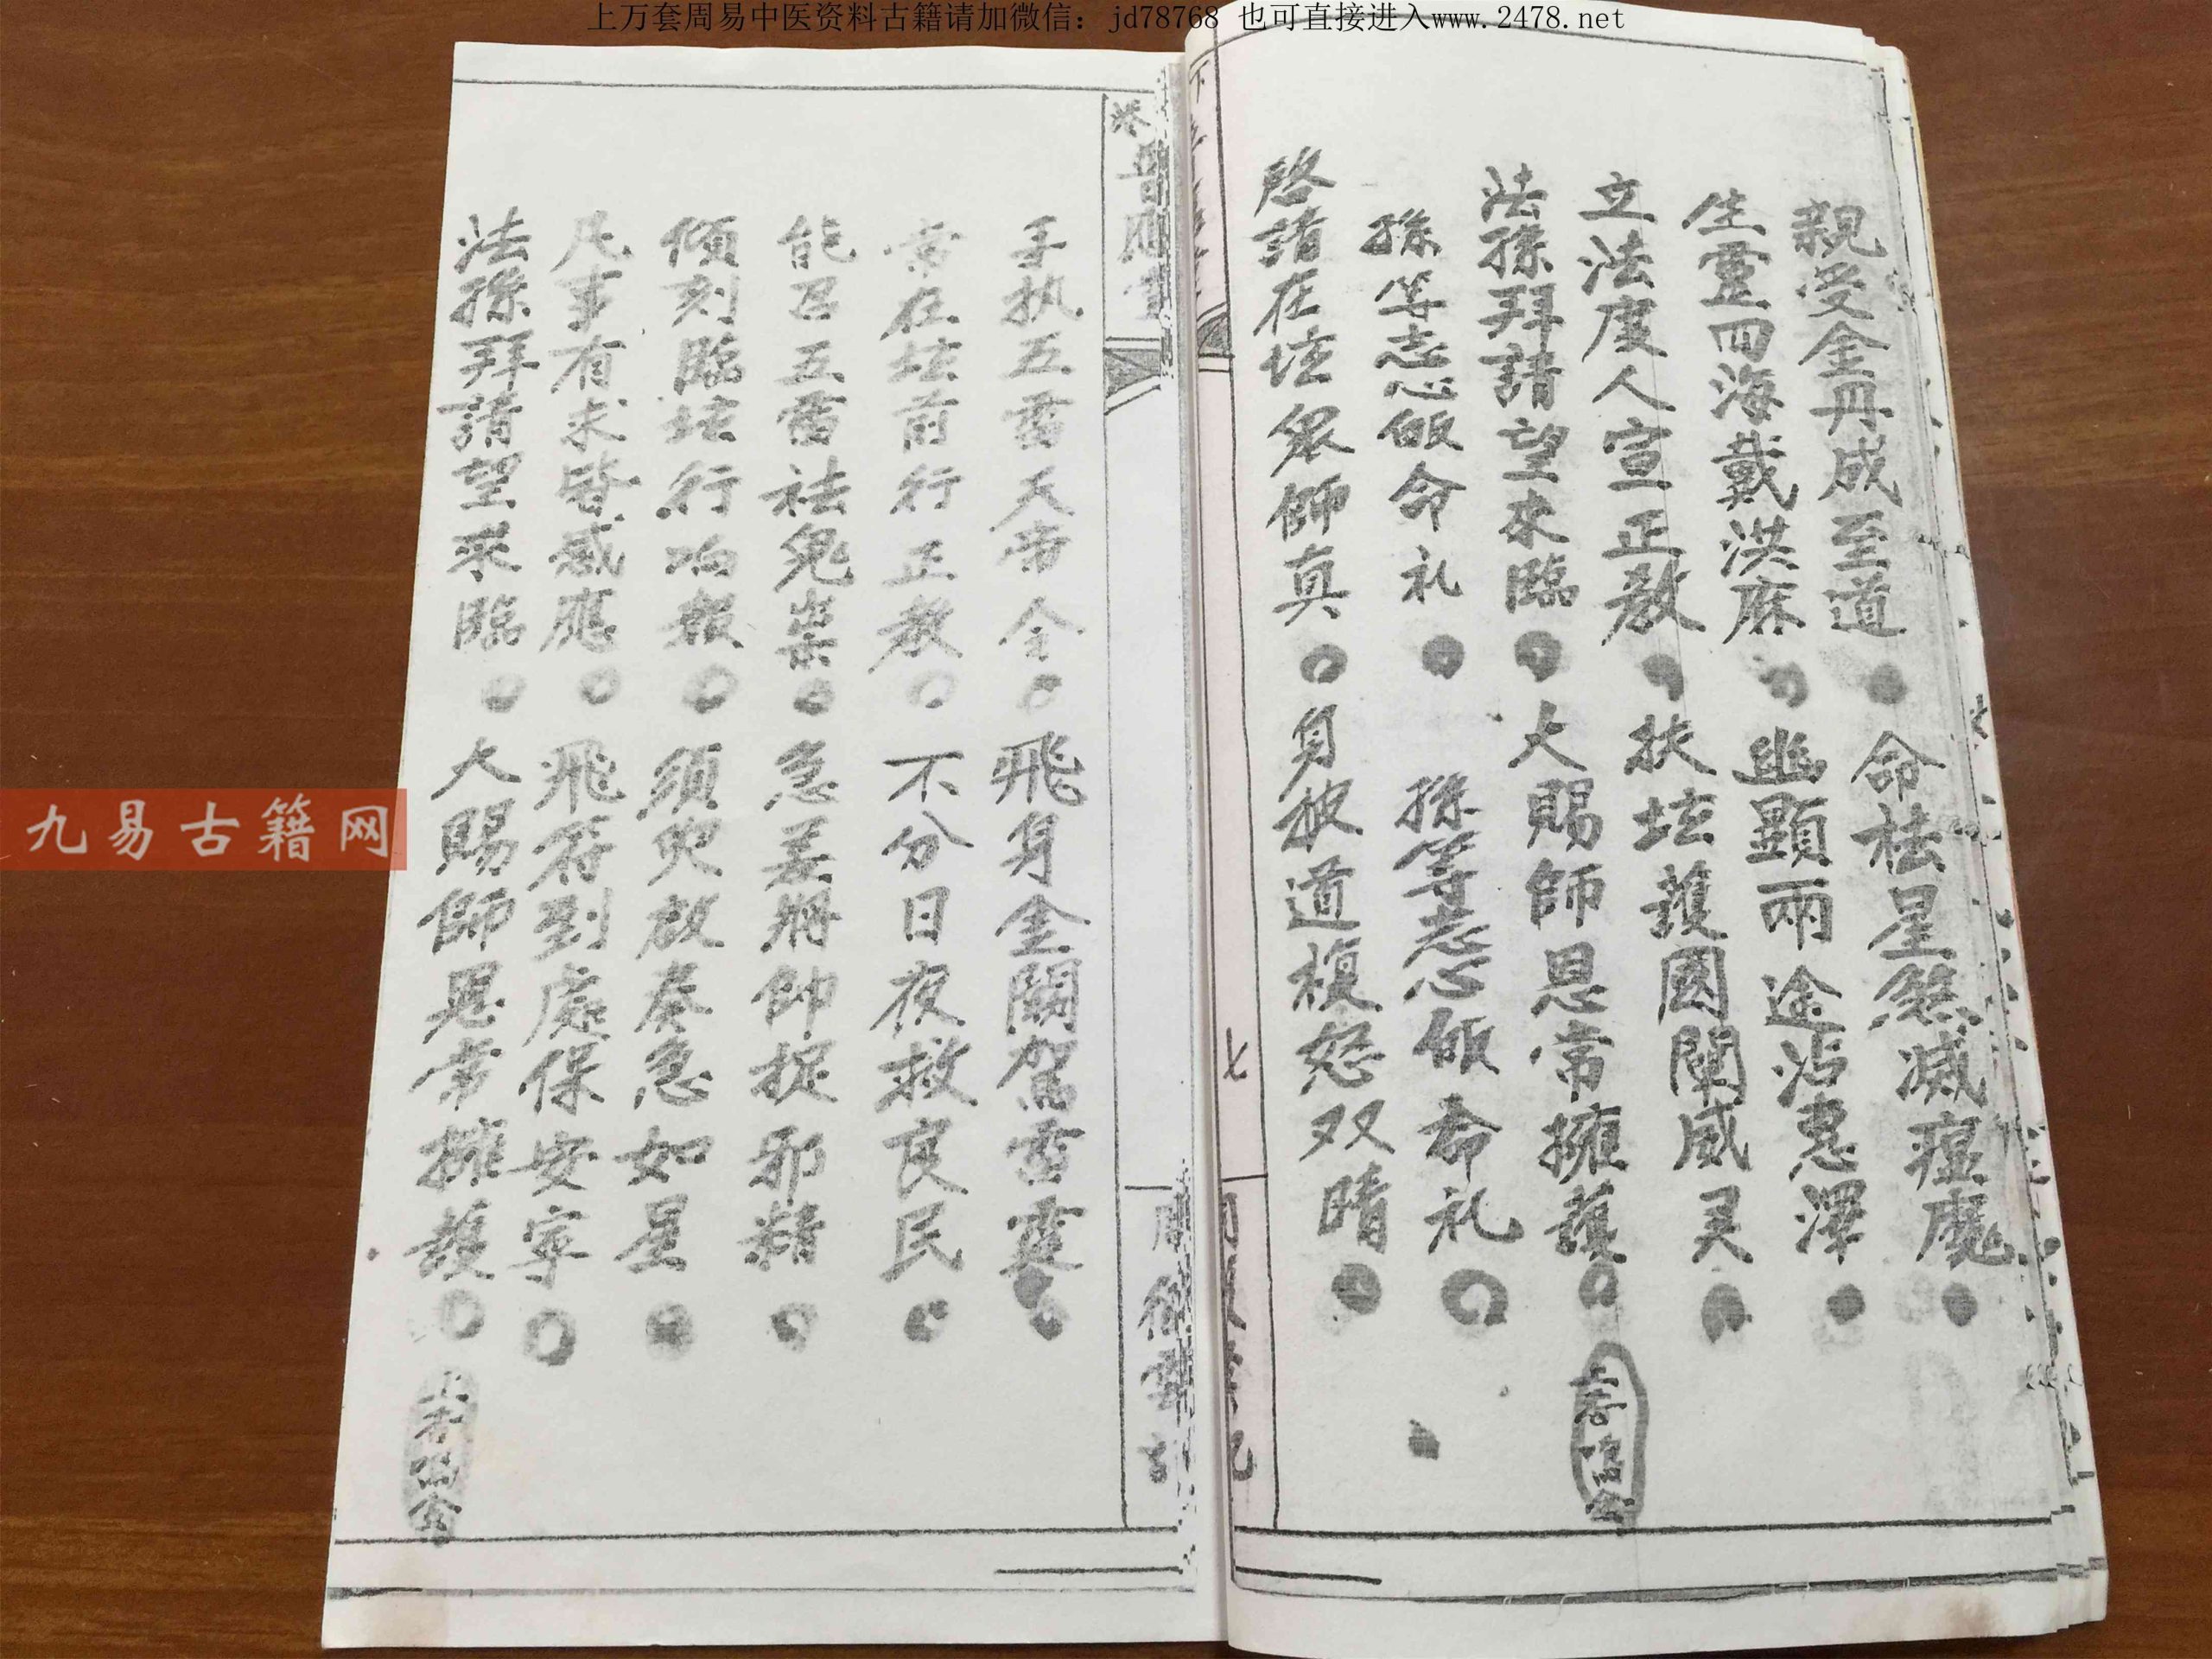 上万套周易中医资料古籍请加微信：jd78768 也可直接进入www.2478.net
親受金丹成至道 命祛星煞滅瘟魔
生靈四海戴洪庥 幽顯兩途沾惠澤
立法度人宣正教 扶坛護國闡威灵
法孫拜請望來臨 大賜師恩常擁護
孫等志心皈命礼 孫等志心皈命礼
啓請在坛眾師真 身披道樸怒双睛
七
手执五雷天帝令 飛身金闕駕雷霆
常在坛前行正教 不分日夜救良民
能召五雷祛鬼祟 急差將帥捉邪精
傾刻臨坛行响報 須臾啟奏急如星
凡事有求皆感應 飛符到處保安寧
法孫拜請望來臨 大賜師恩常擁護
九易古籍网